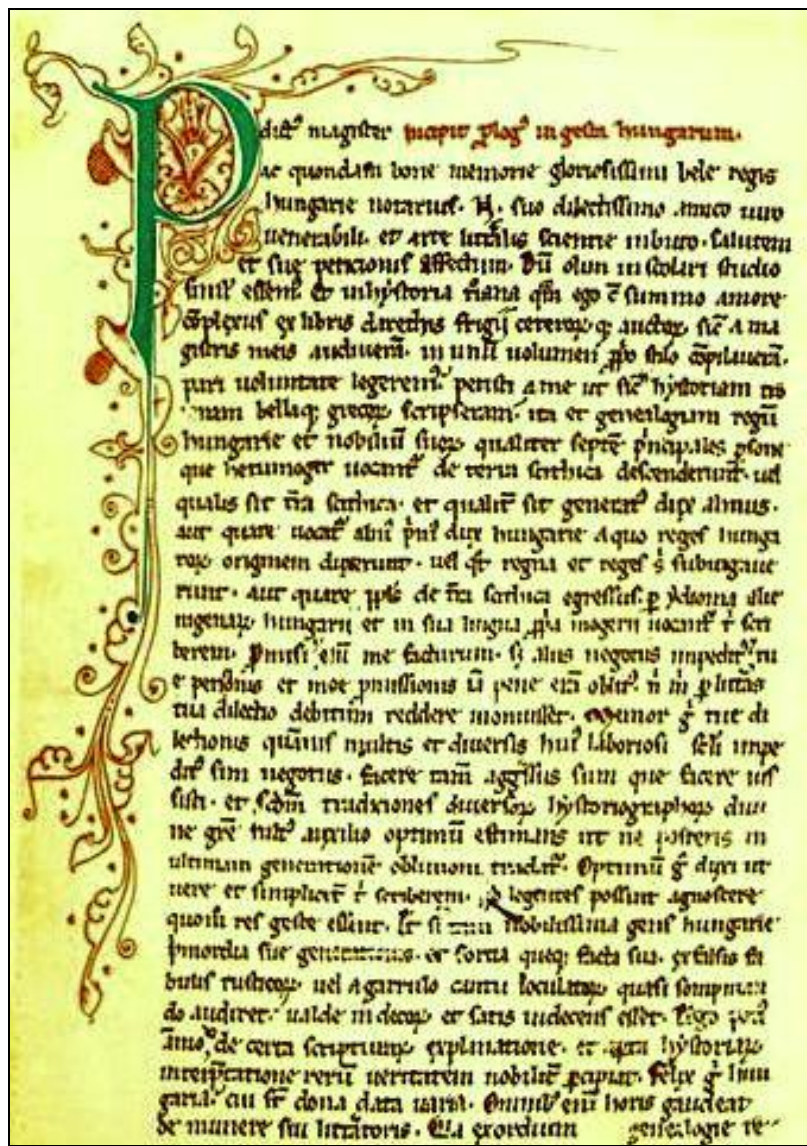 P dictꝰ magister incipit ꝓlogꝰ in gesta hungarum.
ac quondam bone memorie gloriosissimi bele regis
hungarie notarius. N. suo dilectissimo amico uiro
uenerabili. et arte litt̄alis scientie inbuto. salutem
et sue peticionis effectum. Dū olim in scolari studio
simul essemꝰ. et in hystoria t̄iana qm̄ ego cū summo amore
cōplexus ex libris darethis frigij ceteroꝝ qꝫ auctoꝝ. sic̄ a ma
gistris meis audiueram. in unū uolumen ꝓprio stilo cōpilaueram.
pari uoluntate legeremꝰ. petisti a me ut sic̄ hystoriam tro
ianam bellaqꝫ grecoꝝ scripseram. ita et genealogiam regū
hungarie et nobiliū suoꝝ qualiter septē p̄ncipales ꝑsone
que hetumoger uocant̄. de terra scithica descenderunt. uel
qualis sit t̄ra scithica. et qualit̄ sit generatꝰ dux almus.
aut quare uocat̄ almꝰ p̄mꝰ dux hungarie a quo reges hunga
roꝝ originem duxerunt. uel qͦt regna et reges s̄ subiugaue
runt. aut quare ppl̄s de t̄ra scithica egressus. ꝑ ydioma alie
nigenaꝝ hungarii et in sua lingua ꝓp̄a mogerii uocant̄ t̄ scri
berem. Promisi eni me facturum. sꝫ aliis negotiis impeditꝰ. tu
e peticionis et mee ꝓmissionis iā pene erā oblitꝰ. n̄ m̄ ꝑ litt̄as
tua dilectio debitum reddere monuisset. Memor g̊ tue di
lectionis quāuis multis et diuersis huiꝰ laboriosi sc̄li impe
ditꝰ sim negotiis. facere tam̄ aggressus sum que facere ius
sisti. et scd̄m traditiones diuersoꝝ hystoriographoꝝ diui
ne gr̄e fultꝰ auxilio optimū estimans ut ne posteris in
ultimam generationē obliuioni tradat̄. Optimū g̊ duxi ut
uere et simplicit̄ t̄ scriberem. qd̄ legentes possint agnoscere
quom̄ res geste essent. Et si tam nobilissima gens hungarie
p̄mordia sue generationis. et fortia queqꝫ facta sua. ex falsis fa
bulis rusticoꝝ uel a garrulo cantu ioculatoꝝ quasi sompnian
do audiret. ualde indecoꝝ et satis indecens esset. Ergo pociꝰ
ammodo de certa scripturaꝝ explanatione. et aperta hystoriaꝝ
interp̄tatione rerū ueritatem nobilit̄ ꝑcipiat. Felix g̊ hun
garia. cui st̄ dona data uaria. Omnibꝰ eni horis gaudeat
de munere sui litt̄atoris. Quia exordium genealogie re